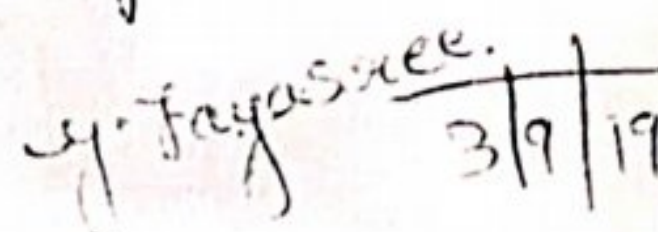 y. Jayasree.
3/9/19